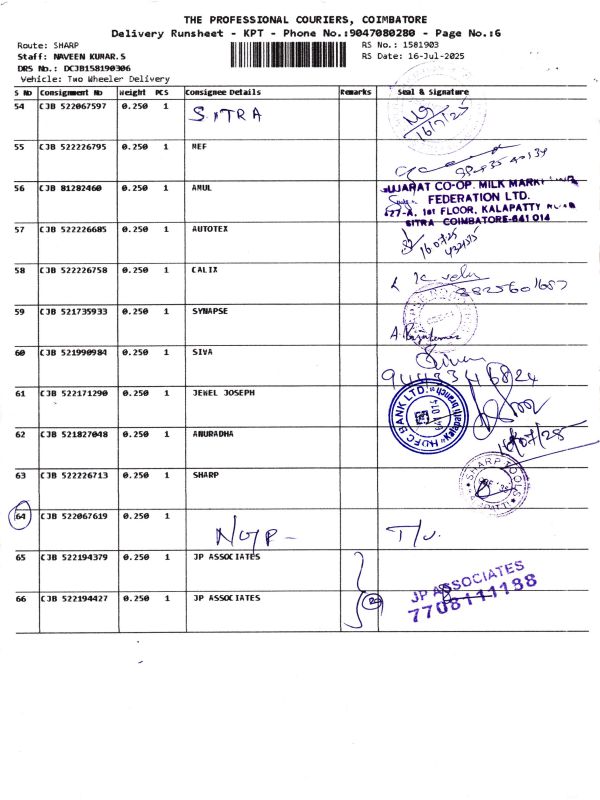 THE PROFESSIONAL COURIERS, COIMBATORE
Delivery Runsheet - KPT - Phone No.:9047080280 - Page No.:6
Route: SHARP
RS No.: 1581903
Staff: NAVEEN KUMAR.S
RS Date: 16-Jul-2025
DRS No.: DCJB158190306
Vehicle: Two Wheeler Delivery
S No Consignment No Weight PCS Consignee Details Remarks Seal & Signature
54 CJB 522067597 0.250 1 SITRA
16/7/25
55 CJB 522226795 0.250 1 MEF
56 CJB 81282460 0.250 1 AMUL
GUJARAT CO-OP. MILK MARKETING
FEDERATION LTD.
427-A, 1st FLOOR, KALAPATTY ROAD
SITRA COIMBATORE-641 014
57 CJB 522226685 0.250 1 AUTOTEX
160725
58 CJB 522226758 0.250 1 CALIX
59 CJB 521735933 0.250 1 SYNAPSE
60 CJB 521990984 0.250 1 SIVA
9443346824
61 CJB 522171290 0.250 1 JEWEL JOSEPH
HDFC BANK LTD.
62 CJB 521827048 0.250 1 ANURADHA
16/07/25
63 CJB 522226713 0.250 1 SHARP
SHARP TOOLS
64 CJB 522067619 0.250 1
65 CJB 522194379 0.250 1 JP ASSOCIATES
66 CJB 522194427 0.250 1 JP ASSOCIATES
JP ASSOCIATES
7708111188